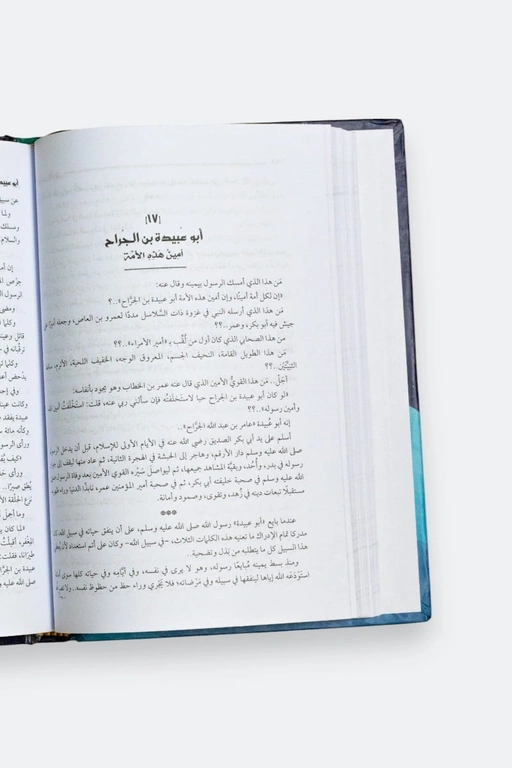 [١٧]
أبو عُبيدة بن الجُراح
أمينُ هَذِهِ الأُمَّة
مَن هذا الذي أمسك الرسول بيمينه وقال عنه:
«إن لكل أمة أمينًا، وإن أمين هذه الأمة أبو عبيدة بن الجرَّاح»..؟
مَن هذا الذي أرسله النبي في غزوة ذات السَّلاسل مددًا لعمرو بن العاص، وجعله أميرًا على
جيش فيه أبو بكر، وعمر..؟؟
من هذا الصحابي الذي كان أول من لُقِّب بـ «أمير الأمراء»..؟؟
مَن هذا الطويل القامة، النحيف الجسم، المعروق الوجه، الخفيف اللحية، الأثرم، ساقط
الثنيتَّيْن..؟؟
أجَلْ.. مَن هذا القويُّ الأمين الذي قال عنه عمر بن الخطاب وهو يجود بأنفاسه:
«لو كان أبو عبيدة بن الجراح حيا لاستخلفتُه فإن سألني ربي عنه، قلت: استَخْلَفتُ أمين الله
وأمين رسوله»..؟؟
إنه أبو عُبيدة «عامر بن عبد الله الجَرَّاح»..
أسلم على يد أبي بكر الصديق رضي الله عنه في الأيام الأولى للإسلام، قبل أن يدخل الرسول
صلى الله عليه وسلم دار الأرقم، وهاجر إلى الحبشة في الهجرة الثانية، ثم عاد منها ليقف إلى جوار
رسوله في بدر، وأُحُد، وبقيَّة المشاهد جميعها، ثم ليواصل سَيْرَه القوي الأمين بعد وفاة الرسول
صلى الله عليه وسلم في صحبة خليفته أبي بكر، ثم في صحبة أمير المؤمنين عمر، نابذًا الدنيا وراء ظهره
مستقبلًا تبعات دينه في زُهد، وتقوى، وصمود، وأمانة.
***
عندما بايع «أبو عبيدة» رسول الله صلى الله عليه وسلم، على أن ينفق حياته في سبيل الله، كان
مدركًا تمام الإدراك ما تعنيه هذه الكلمات الثلاث، –في سبيل الله– وكان على أتم استعداد لأن يعطي
هذا السبيل كل ما يتطلبه من بذل وتضحية..
ومنذ بسط يمينه مُبايعًا رسوله، وهو لا يرى في نفسه، وفي أيَّامِه وفي حياته كلها سوى أمانة
استَوْدَعَه الله إياها لينفقها في سبيله وفي مَرْضاته؛ فلا يَجْري وراء حظ من حظوظ نفسه..